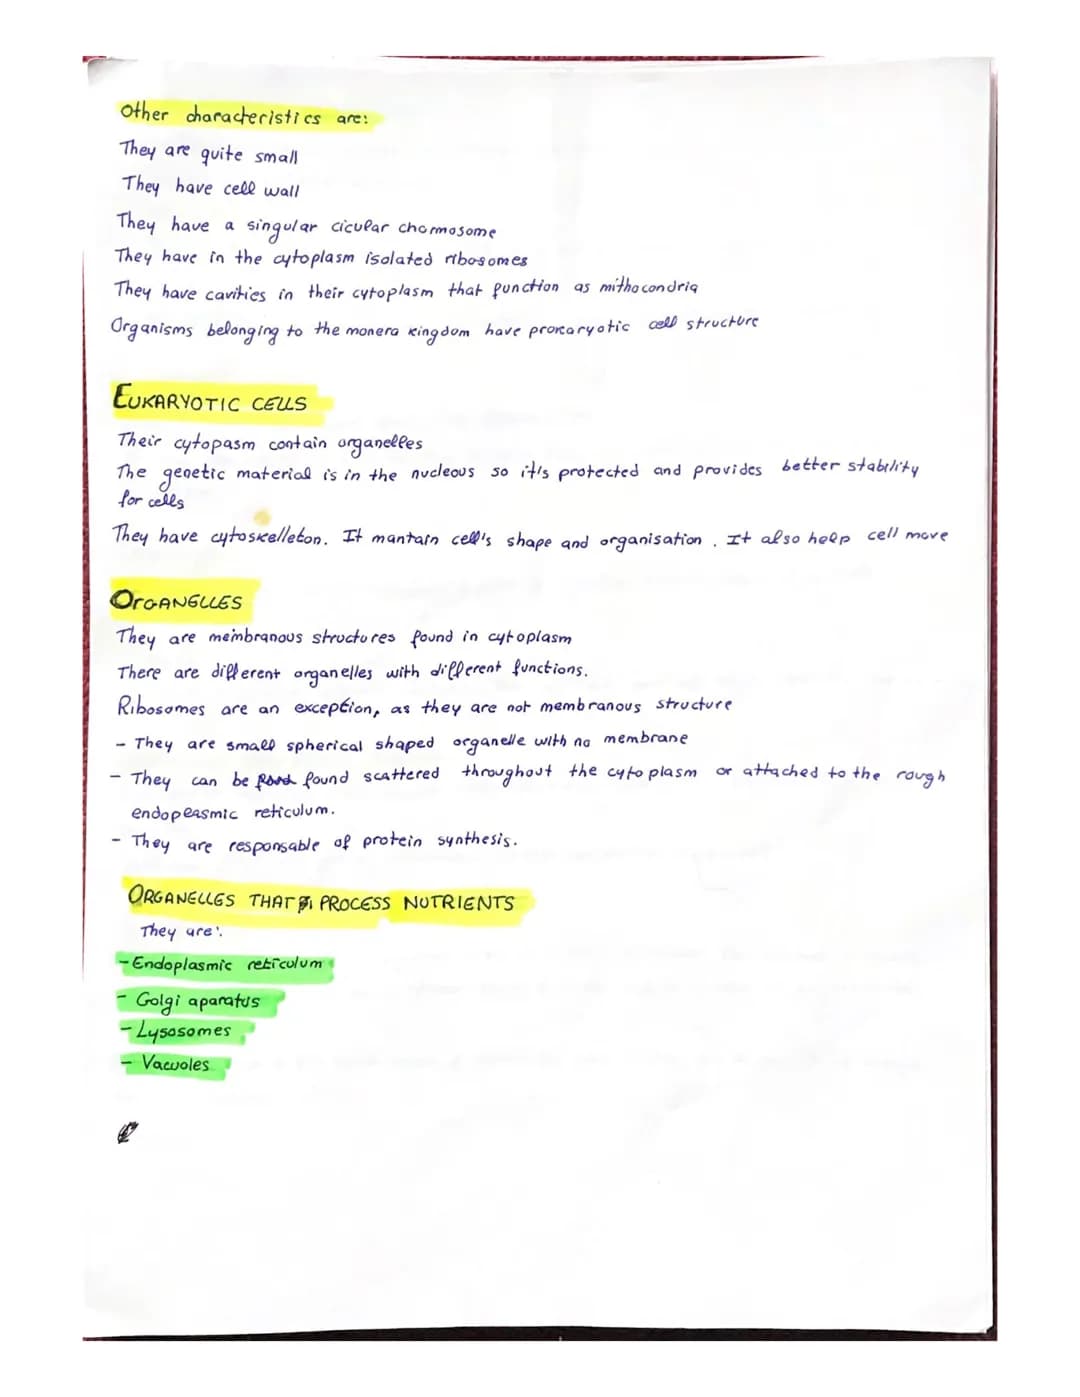 Other characteristics are:
They are quite small
They have cell wall
They have a singular cicular chormosome
They have in the cytoplasm isolated ribosomes
They have cavities in their cytoplasm that function as mithocondria
Organisms belonging to the monera kingdom have prokaryotic cell structure
EUKARYOTIC CELLS
Their cytopasm contain organelles
The genetic material is in the nucleous so it's protected and provides better stability
for cells
They have cytoskelleton. It mantain cell's shape and organisation. It also help cell move
ORGANELLES
They are membranous structures found in cytoplasm
There are different organelles with different functions.
Ribosomes are an exception, as they are not membranous structure
- They are small spherical shaped organelle with no membrane
- They can be found scattered throughout the cytoplasm or attached to the rough
endopeasmic reticulum.
- They are responsable of protein synthesis.
ORGANELLES THAT PROCESS NUTRIENTS
They are:
- Endoplasmic reticulum
- Golgi aparatus
- Lysosomes
- Vacuoles